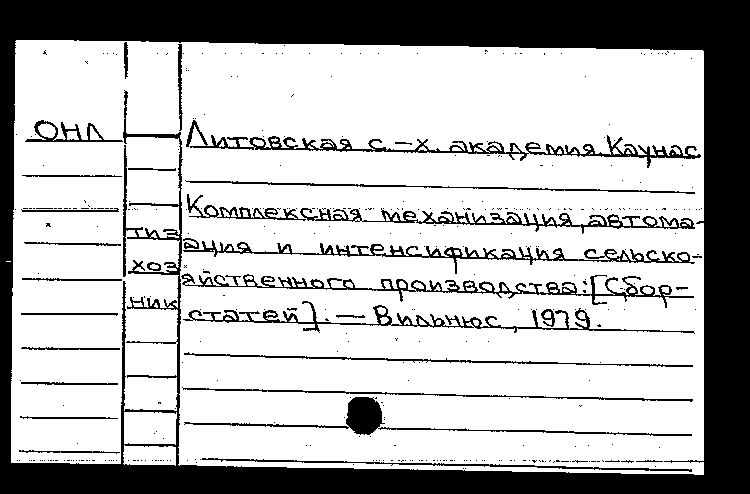 ОНЛ
Литовская с.-х. академия. Каунас
Комплексная механизация, автома-
тизация и интенсификация сельско-
хозяйственного производства: [Сбор-
ник статей]. — Вильнюс, 1979.